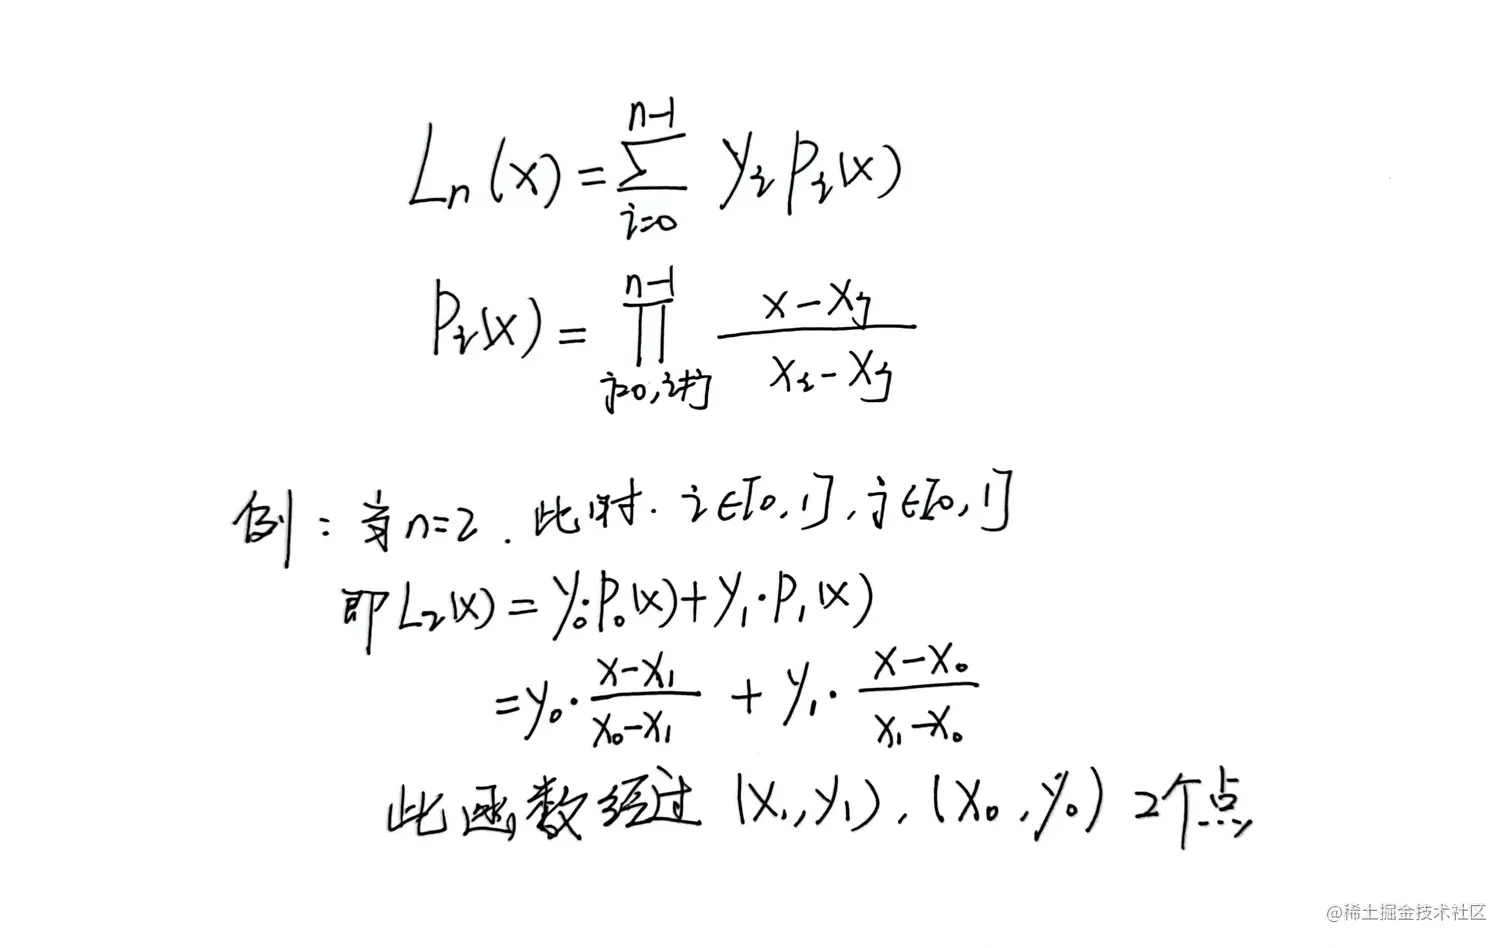 Lₙ(x) = ∑_{i=0}^{n-1} yᵢ pᵢ(x)
pᵢ(x) = ∏_{j=0, i≠j}^{n-1} (x - xⱼ)/(xᵢ - xⱼ)
例：当n=2. 此时. i∈[0,1], j∈[0,1]
即L₂(x) = y₀·p₀(x) + y₁·p₁(x)
= y₀·(x-x₁)/(x₀-x₁) + y₁·(x-x₀)/(x₁-x₀)
此函数经过 (x₁,y₁), (x₀,y₀) 2个点
@稀土掘金技术社区